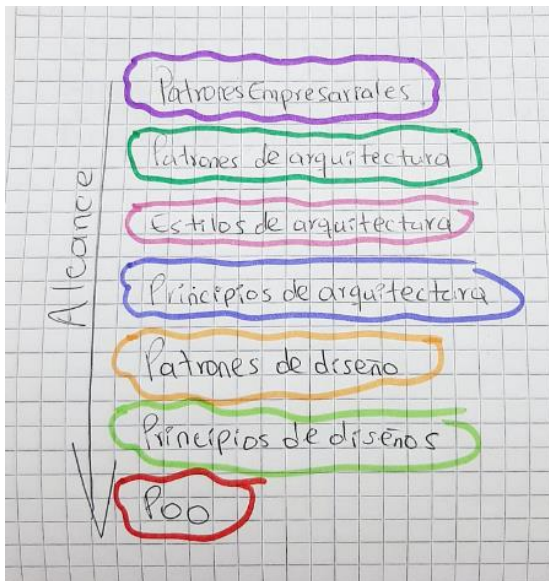 Patrones Empresariales
Patrones de arquitectura
Estilos de arquitectura
Principios de arquitectura
Patrones de diseño
Principios de diseños
POO
Alcance